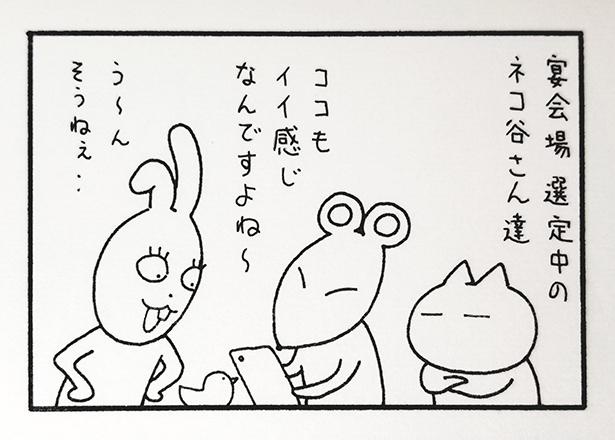 宴会場 選定中の
ネコ谷さん達
ココも
イイ感じ
なんですよね〜
う〜ん
そうねぇ‥